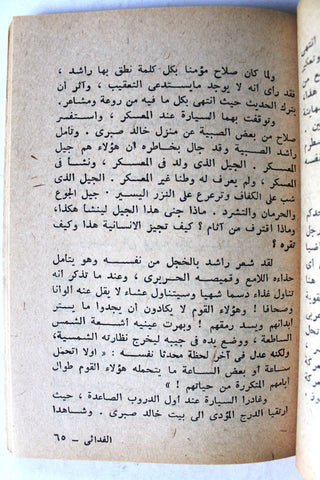 ولما كان صلاح مؤمنا بكل كلمة نطق بها راشد ،
فقد رأى انه لا يوجد مايستدعى التعقيب ، وآثر أن
يترك الحديث حيث انتهى بكل ما فيه من روعة ومشاعر.
وتوقفت بهما السيارة عند المعسكر ، واستفسر
صلاح من بعض الصبية عن منزل خالد صبرى . وتأمل
راشد الصبية وقد جال بخاطره ان هؤلاء هم جيل
المعسكر . الجيل الذى ولد فى المعسكر ، ونشأ فى
المعسكر ، ولم يعرف له وطنا غير المعسكر . الجيل الذى
شب على الكفاف وترعرع على النزر اليسير . جيل الجوع
والحرمان والتشرد . ماذا جنى هذا الجيل لينشأ هكذا،
وماذا اقترف من آثام ؟ كيف تجيز الانسانية هذا وكيف
تقره ؟
لقد شعر راشد بالخجل من نفسه وهو يتأمل
حذاءه اللامع وقميصه الحريرى ، وعند ما تذكر انه
تناول غذاء دسما شهيا وسيتناول عشاء لا يقل عنه الوانا
وصحافا ! وهؤلاء القوم لا يكادون أن يجدوا ما يستر
ابدانهم ويسد رمقهم ! وبهرت عينيه أشعة الشمس
الساطعة ، فوضع يده فى جيبه ليخرج نظارته الشمسية،
ولكنه عدل فى آخر لحظة محدثا نفسه : « اولا اتحمل
ساعة أو بعض الساعة ما يتحمله هؤلاء القوم طوال
ايامهم المتكررة من حياتهم ! »
وغادرا السيارة عند أول الدروب الصاعدة ، حيث
ارتقيا الدرج المؤدى الى بيت خالد صبرى . وشاهدا
الفدائى — ٦٥